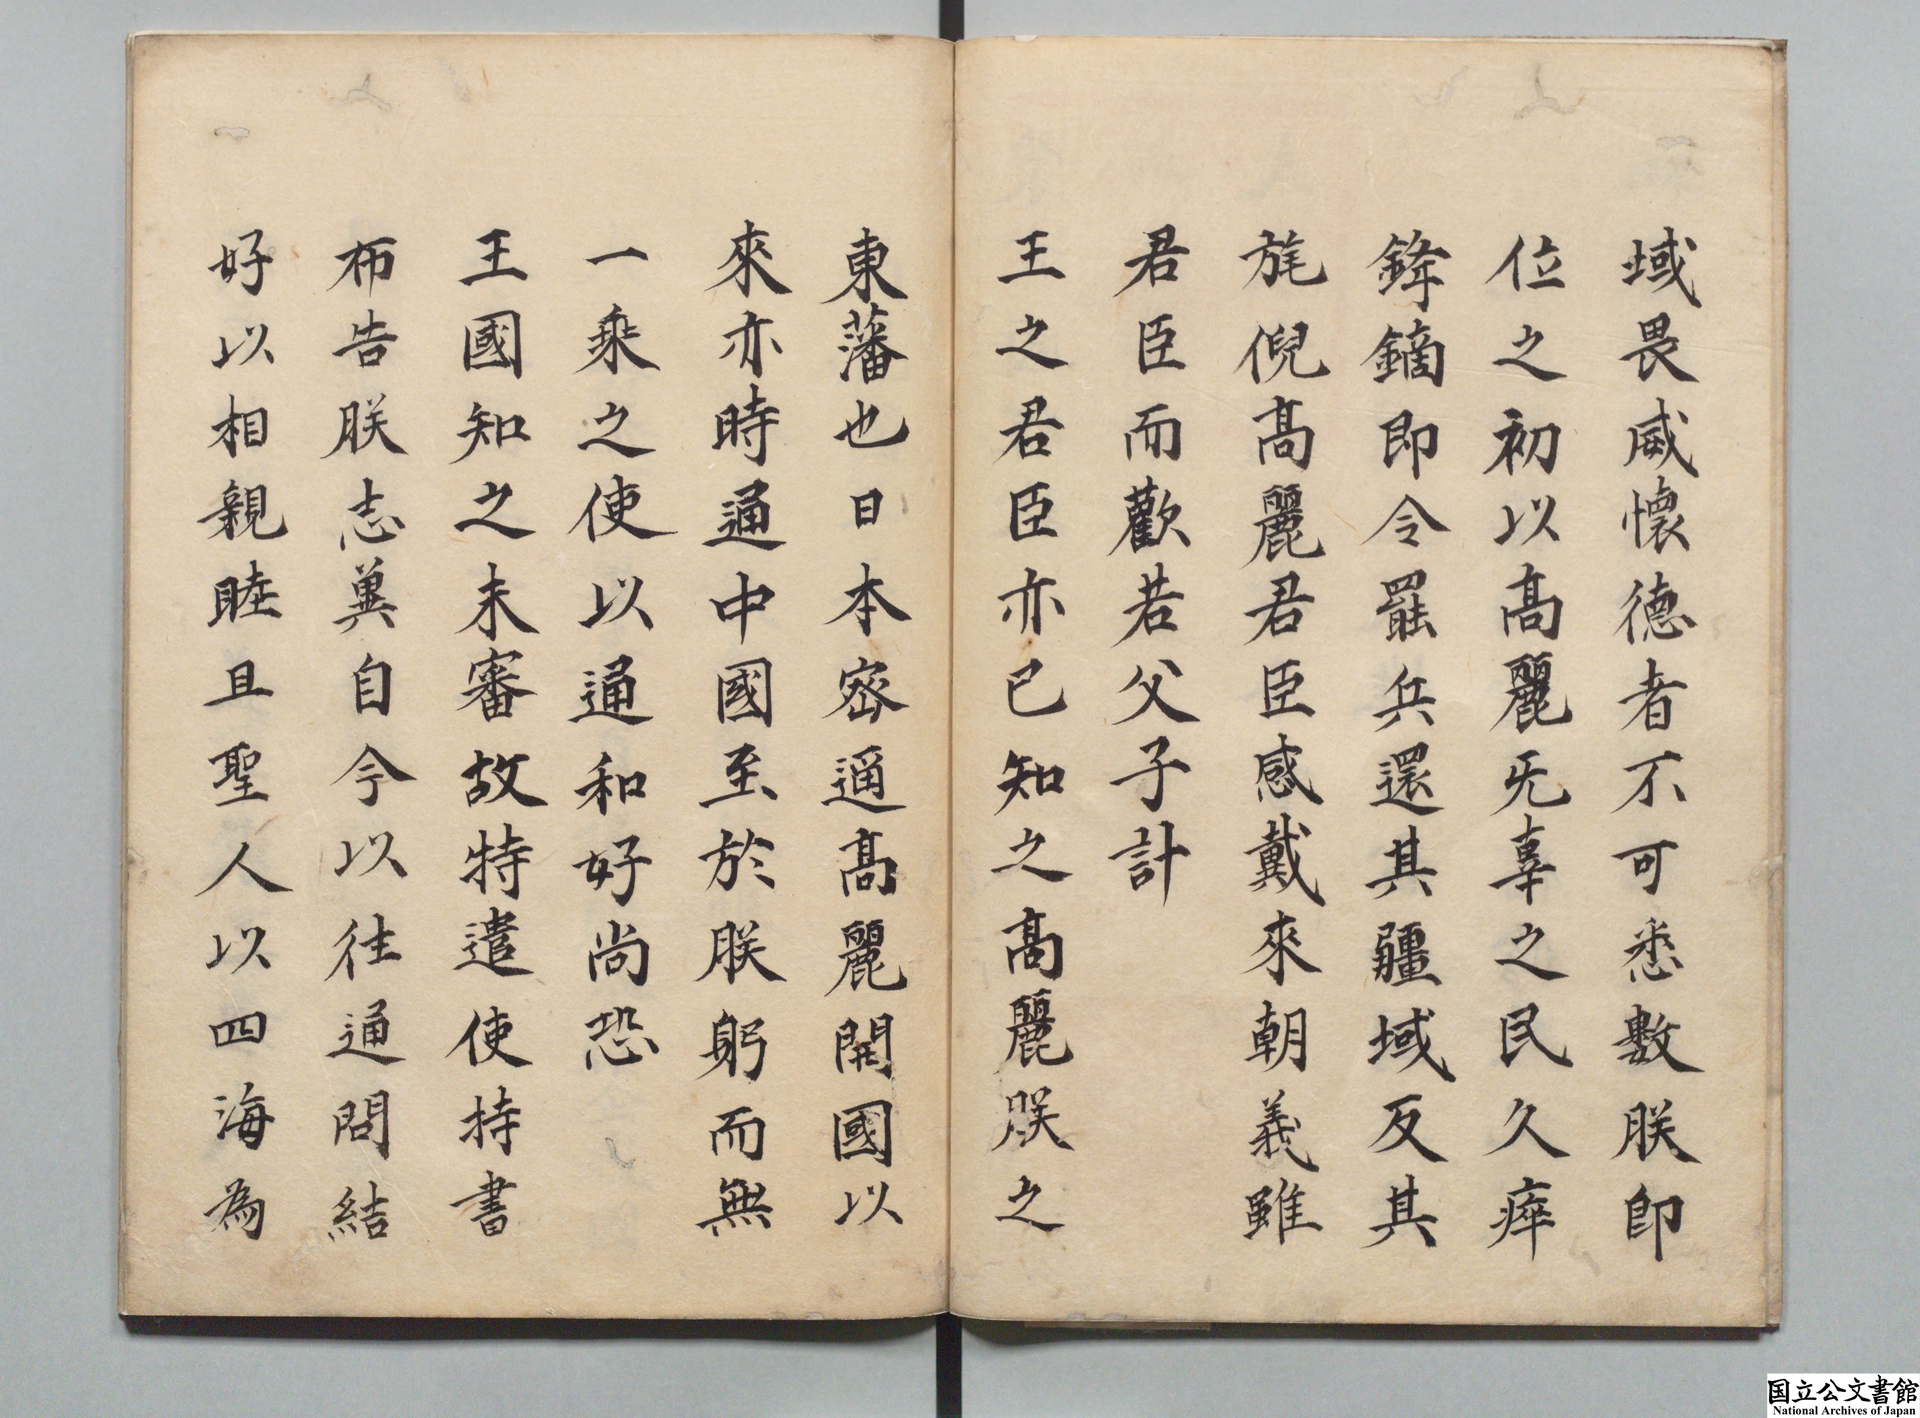 域畏威懐德者不可悉數朕即
位之初以髙麗无辜之民久瘁
鋒鏑即令罷兵還其疆域反其
旄倪髙麗君臣感戴來朝義雖
君臣而歡若父子計
王之君臣亦已知之髙麗朕之
東藩也日本密邇髙麗開國以
來亦時通中國至於朕躬而無
一乘之使以通和好尚恐
王國知之未審故特遣使持書
布告朕志冀自今以往通問結
好以相親睦且聖人以四海為
国立公文書館
National Archives of Japan